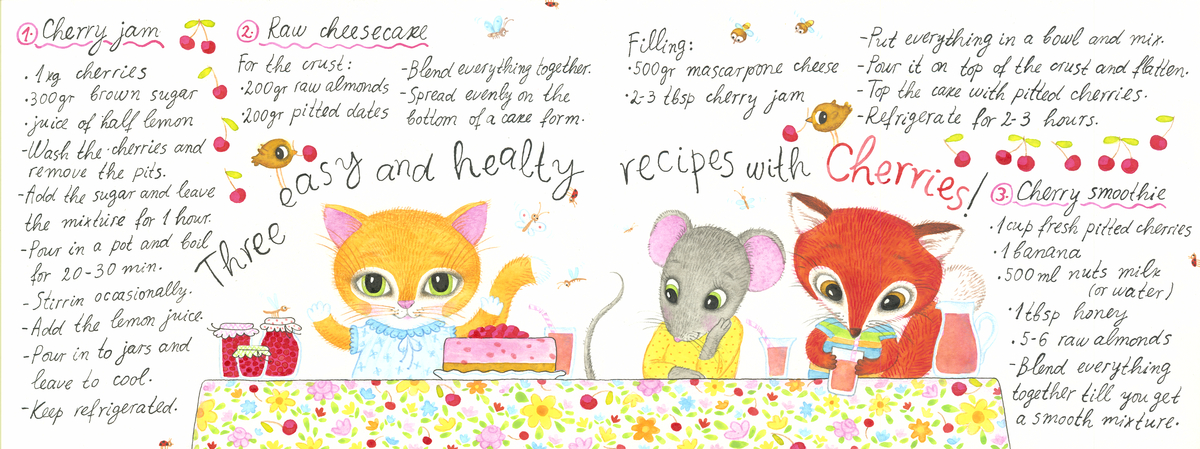 Three easy and healty recipes with Cherries!
1. Cherry jam
• 1kg cherries
• 300gr brown sugar
• juice of half lemon
-Wash the cherries and
remove the pits.
-Add the sugar and leave
the mixture for 1 hour.
-Pour in a pot and boil
for 20-30 min.
-Stirrin occasionally.
-Add the lemon juice.
-Pour in to jars and
leave to cool.
-Keep refrigerated.
2. Raw cheesecake
For the crust:
• 200gr raw almonds
• 200gr pitted dates
-Blend everything together.
-Spread evenly on the
bottom of a cake form.
Filling:
• 500gr mascarpone cheese
• 2-3 tbsp cherry jam
-Put everything in a bowl and mix.
-Pour it on top of the crust and flatten.
-Top the cake with pitted cherries.
-Refrigerate for 2-3 hours.
3. Cherry smoothie
• 1cup fresh pitted cherries
• 1 banana
• 500ml nuts milk
(or water)
• 1tbsp honey
• 5-6 raw almonds
-Blend everything
together till you get
a smooth mixture.